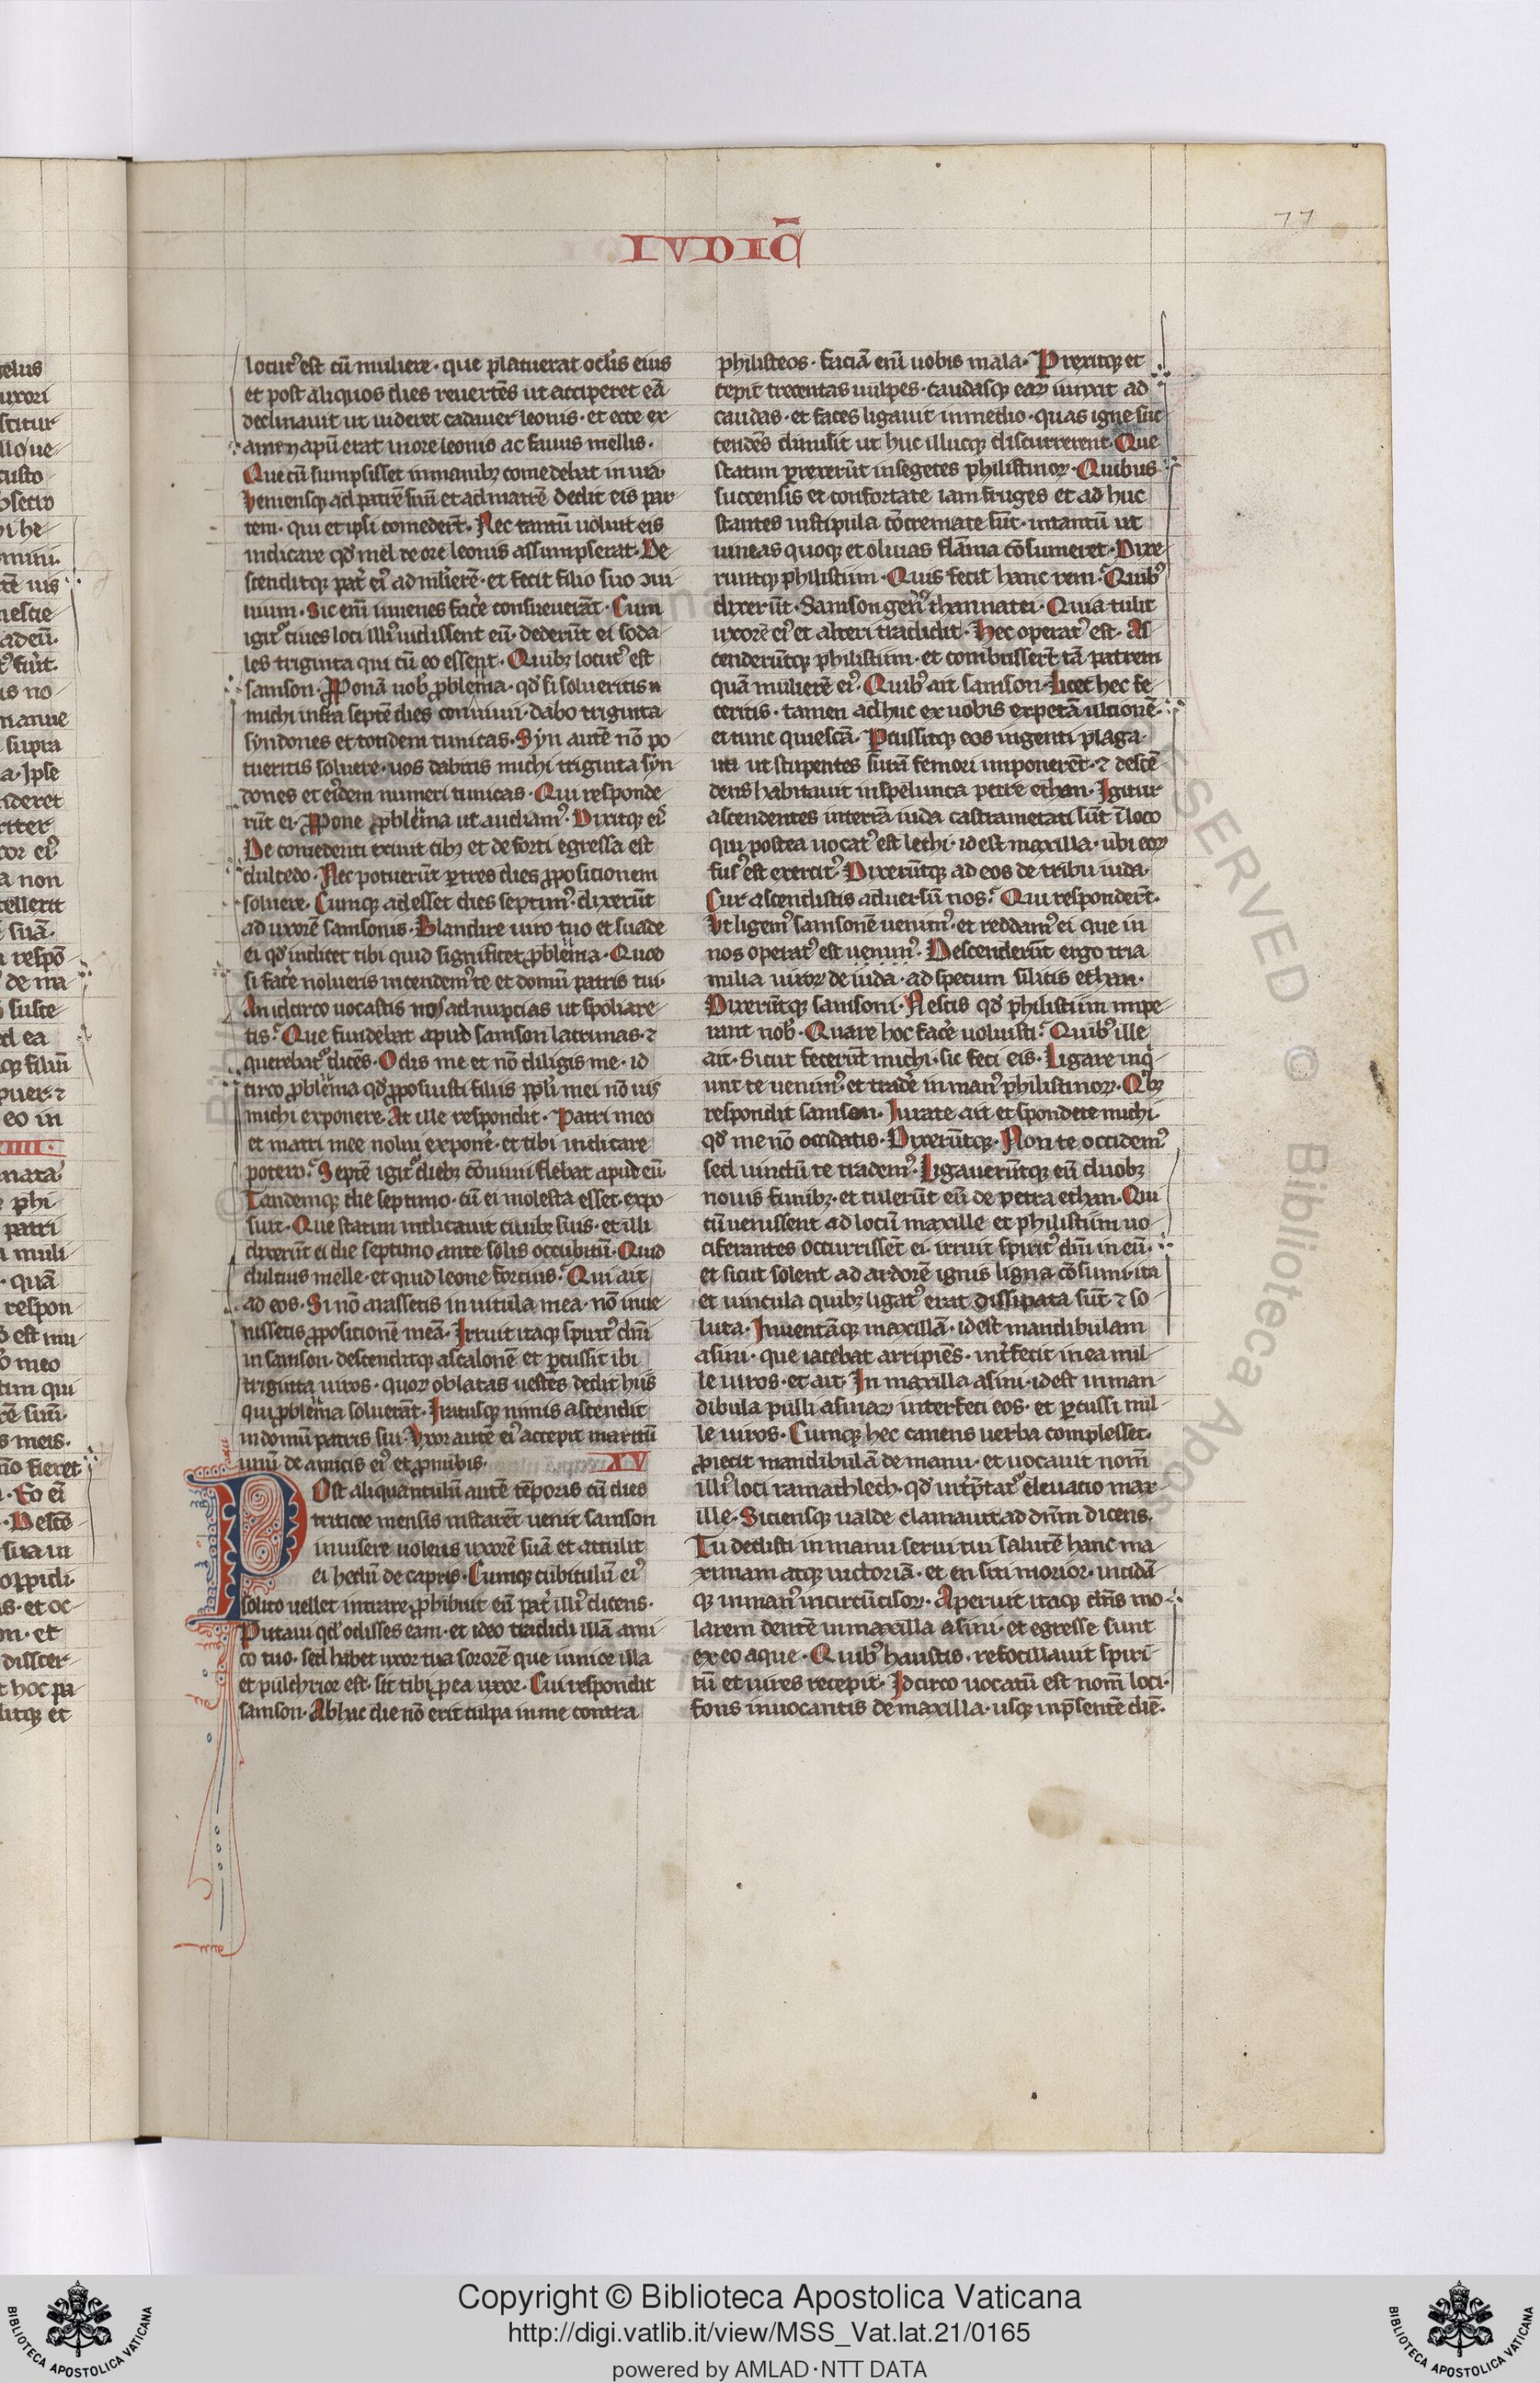 77
IVDIC̄
locutꝰ est cū muliere· que placuerat oculis eius
et post aliquos dies reuertēs ut acciperet eā
declinauit ut uideret cadauer leonis· et ecce ex
amen apū erat in ore leonis ac fauus mellis·
Que cū sumpsisset in manibꝫ comedebat in uia·
Veniensqꝫ ad patrē suū et ad matrē dedit eis par
tem· qui et ipsi comederūt· Nec tamē uoluit eis
indicare qđ mel de ore leonis assumpserat· De
scenditqꝫ pat̄ eiꝰ ad mlierē· et fecit filio suo ↄui
uium· Sic enī iuuenes face consueuerāt· Cum
igit᷑ ciues loci illiꝰ uidissent eū· dederūt ei soda
les triginta qui cū eo essent· Quibꝫ locutꝰ est
samson· Ponā uob ꝓblema· qđ si solueritis
michi infra septē dies conuiuii· dabo triginta
syndones et totidem tunicas· Syn autē nō po
tueritis soluere· uos dabitis michi triginta syn
dones et eiꝰdem numeri tunicas· Qui responde
rūt ei· Propone ꝓblema ut audiamꝰ· Dixitqꝫ eis
De comedenti exiuit cibꝫ et de forti egressa est
dulcedo· Nec potuerūt ꝑ tres dies ꝓpositionem
soluere· Cumqꝫ adesset dies septimꝰ· dixerūt
ad uxorē samsonis· Blandire uiro tuo et suade
ei qđ indicet tibi quid significet ꝓblema· Quod
si face nolueris incendemꝰ te et domū patris tui·
An idcirco uocastis nos ad nupcias ut spoliare
tis· Que fundebat apud samson lacrimas· ⁊
querebat᷑ dicēs· Odis me et nō diligis me· id
circo ꝓblema qđ ꝓposuisti filiis ppli mei nō uis
michi exponere· At ille respondit· Patri meo
et matri mee nolui expone· et tibi indicare
potero· Septē igit᷑ diebꝫ cōuiuii flebat apud eū
Tandemqꝫ die septimo· cū ei molesta esset· expo
suit· Que statim indicauit ciuibꝫ suis· et illi
dixerūt ei die septimo ante solis occubitū· Quid
dulcius melle· et quid leone fortius· Qui ait
ad eos· Si nō arassetis in uitula mea· nō inue
nissetis ꝓpositionē meā· Irruit itaqꝫ spiritꝰ dn̄i
in samson· descenditqꝫ ascalonē et ꝑcussit ibi
triginta uiros· quoꝝ oblatas uestes dedit hiis
qui ꝓblema soluerāt· Iratusqꝫ nimis ascendit
in domū patris sui· Vxor autē eiꝰ accepit maritū
unū de amicis eiꝰ et ꝓnubis· XV
Post aliquantulū autē tēporis cū dies
triticee messis instarēt uenit samson
inuisere uolens uxorē suā et attulit
ei hedū de capris· Cumqꝫ cubiculū eiꝰ
solito uellet intrare ꝓhibuit eū pat̄ illiꝰ dicens·
Putaui qđ odisses eam· et ideo tradidi illā ami
co tuo· sed habet uxor tua sororē que iunior illa
et pulchrior est· sit tibi ꝓ ea uxor· Cui respondit
samson· Ab hac die nō erit culpa in me contra
philisteos· faciā enī uobis mala· Prexitqꝫ et
cepit trecentas uulpes· caudasqꝫ eaꝝ iunxit ad
caudas· et faces ligauit in medio· quas igne suc
cendēs dimisit ut huc illucqꝫ discurrerent· Que
statim ꝑrexerūt in segetes philistinoꝝ· Quibus
succensis et confortate iam fruges et ad huc
stantes in stipula cōcremate sūt· in tantū ut
uineas quoqꝫ et oliuas flāma cōsumeret· Dixe
runtqꝫ philistiim· Quis fecit hanc rem· Quibꝰ
dixerūt· Samson genꝰ thamnatei· Quia tulit
uxorē eiꝰ et alteri tradidit· Hec operatꝰ est· As
cenderūtqꝫ philistiim· et combusserūt tā patrem
quā mulierē eiꝰ· Quibꝰ ait samson· Licet hec fe
ceritis· tamen ad huc ex uobis expetā ultionē·
et tunc quiescā· Pcussitqꝫ eos ingenti plaga·
ita ut stupentes surā femori imponerēt· ⁊ descē
dens habitauit in spelunca petre ethan· Igitur
ascendentes in terrā iuda castrametati sūt ī loco
qui postea uocatꝰ est lechi· id est maxilla· ubi eoꝝ
fusꝰ est exercitꝰ· Dixerūtqꝫ ad eos de tribu iuda·
Cur ascendistis aduersū nos· Qui responderūt·
Vt ligemꝰ samsonē uenimꝰ· et reddamꝰ ei que in
nos operatꝰ est uenimꝰ· Descenderūt ergo tria
milia uiroꝝ de iuda· ad specum silicis ethan·
Dixerūtqꝫ samsoni· Nescis qđ philistiim impe
rant nob· Quare hoc face uoluisti· Quibꝰ ille
ait· Sicut fecerūt michi· sic feci eis· Ligare inq
unt te uenimꝰ· et trade in manꝰ philistinoꝝ· Qbꝫ
respondit samson· Iurate ait et spondete michi·
qđ me nō occidatis· Dixerūtqꝫ· Non te occidemꝰ
sed uinctū te trademꝰ· Ligauerūtqꝫ eū duobꝫ
nouis funibꝫ· et tulerūt eū de petra ethan· Qui
cū uenissent ad locū maxille et philistiim uo
ciferantes occurrissēt ei· irruit spiritꝰ dn̄i in eū·
et sicut solent ad ardorē ignis ligna cōsumi· ita
et uincula quibꝫ ligatꝰ erat dissipata sūt· ⁊ so
luta· Inuentāqꝫ maxillā· id est mandibulam
asini· que iacebat arripiēs· int̄fecit in ea mil
le uiros· et ait· In maxilla asini· id est in man
dibula pulli asinaꝝ interfeci eos· et ꝑcussi mil
le uiros· Cumqꝫ hec canens uerba complesset·
ꝓiecit mandibulā de manu· et uocauit nom̄
illiꝰ loci ramathlech· qđ int̄p̄tat᷑ eleuatio max
ille· Siciensqꝫ ualde clamauit ad dn̄m dicens·
Tu dedisti in manu serui tui salutē hanc ma
ximam atqꝫ uictoriā· et en siti morior· incidā
qꝫ in manꝰ incircūcisoꝝ· Aperuit itaqꝫ dn̄s mo
larem dentē in maxilla asini· et egresse sunt
ex eo aque· Quibꝰ haustis· refocillauit spiri
tū et uires recepit· Idcirco uocatū est nom̄ loci·
fons inuocantis de maxilla· usqꝫ in p̄sentē diē·
Copyright © Biblioteca Apostolica Vaticana
http://digi.vatlib.it/view/MSS_Vat.lat.21/0165
powered by AMLAD·NTT DATA
BIBLIOTECA APOSTOLICA VATICANA
BIBLIOTECA APOSTOLICA VATICANA